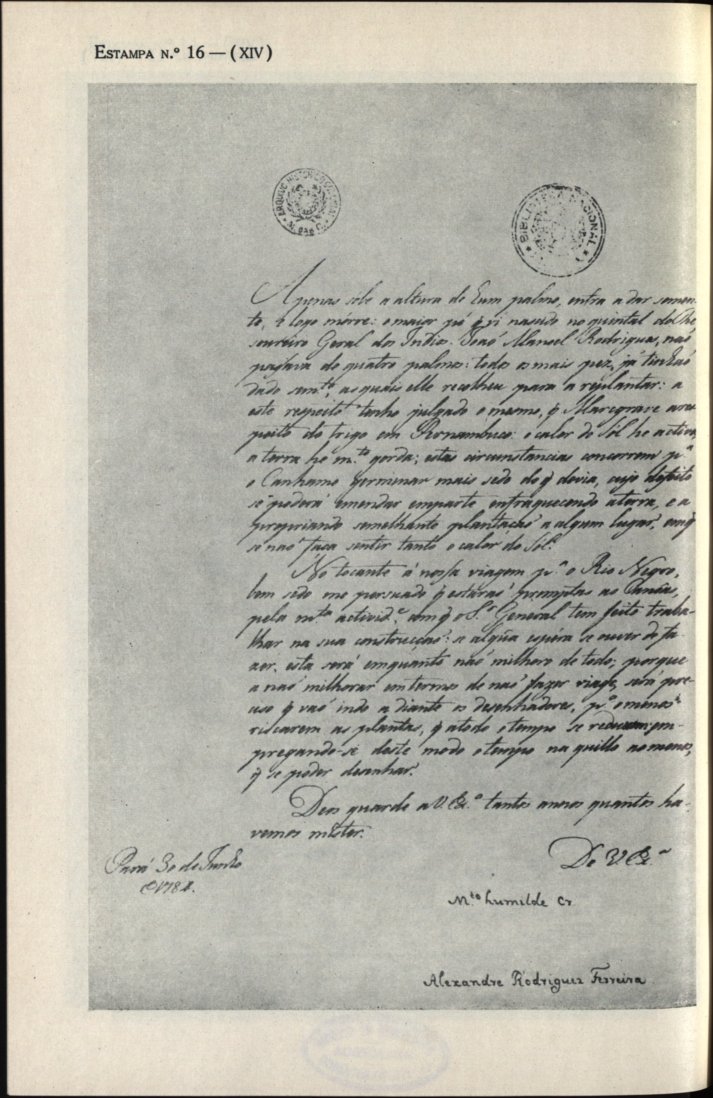 ESTAMPA N.º 16 — (XIV)
ARQUIVO HISTORICO COLONIAL
BIBLIOTECA NACIONAL
Apenas sóbe a altura de hum palmo, entra a dar semen-
te, e logo mórre: o maior pé q̃ vi nascido no quintal do The
soureiro Geral dos Indios Joaõ Manoel Rodrigues, naõ
passava de quatro palmos: todos os mais pez, já tinhaõ
dado sem.te, as quais elle recolheu para a replantar: a
este respeito tenho julgado o mesmo, q̃ Marcgrave a res
peito do trigo em Pernambuco: o calor do Sol he activo,
a terra hé m.to gorda; estas circunstancias concorrem p.ª
o Canhamo germinar mais sedo do q̃ devia, cujo defeito
se poderá emendar em parte enfraquecendo a terra, e a
propriando semelhante plantaçaõ a algum lugar, em q̃
se naõ faça sentir tanto o calor do Sol.
No tocante á nossa viagem p.ª o Rio Negro,
bem sedo me persuado q̃ estaraõ promptas as Canôas,
pela m.ta activid.e com q̃ o S.r General tem feito traba-
lhar na sua construcçaõ: se algũa espera se ouver de fa-
zer, esta será emquanto naõ milhoro de todo; porque
a naõ milhorar em termos de naõ fazer viagẽ, será pre-
ciso q̃ vaõ indo a diante os desenhadores, p.ª o menos
riscarem as plantas, q̃ a todo o tempo se reduzem: em-
pregando-se deste modo o tempo na quillo ao menos,
q̃ se poder desenhar.
Deos guarde a V. Ex.ª tantos annos quantos ha-
vemos mister.
De V Ex.ª
Pará 30 de Junho
de 1784.
M.to humilde Cr.
Alexandre Rodriguez Ferreira